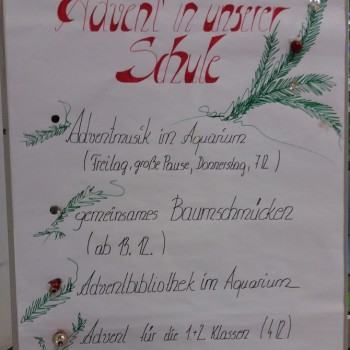 Advent in unserer
Schule
Adventmusik im Aquarium
(Freitag, große Pause, Donnerstag, 7.12)
gemeinsames Baumschmücken
(ab 13.12.)
Adventbibliothek im Aquarium
Advent für die 1+2 Klassen (4.12)